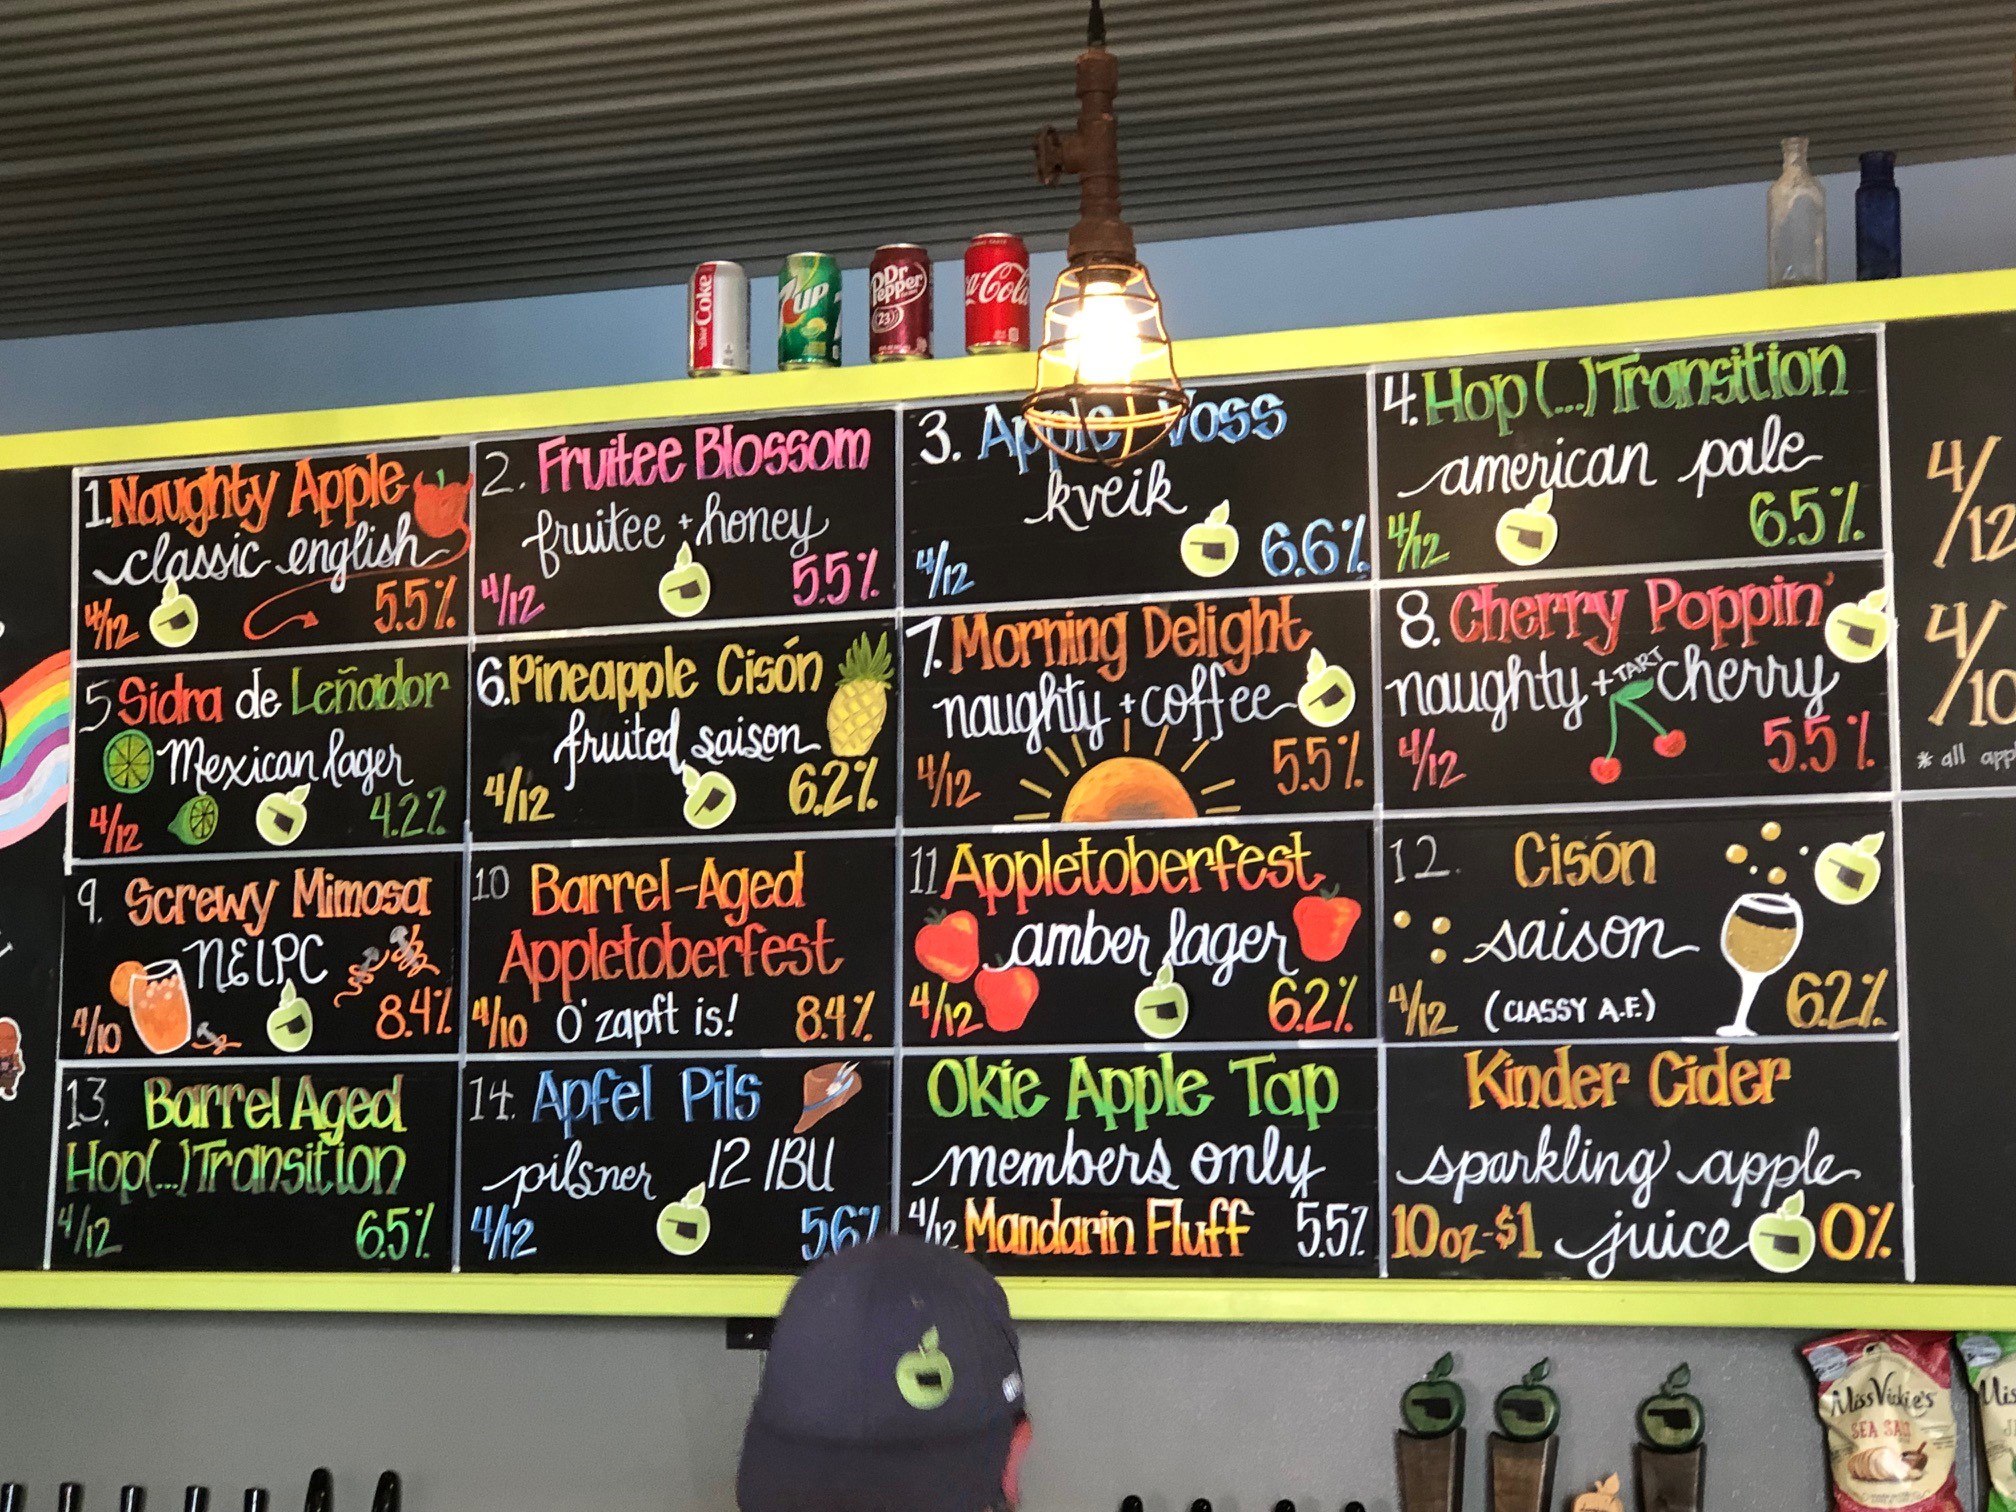 Coke
7UP
Dr Pepper
23
Coca-Cola
1. Naughty Apple
classic english
4/12 5.5%
2. Fruitee Blossom
fruitee + honey
4/12 5.5%
3. Apple Voss
kveik
4/12 6.6%
4. Hop (...) Transition
american pale
4/12 6.5%
5 Sidra de Leñador
Mexican lager
4/12 4.2%
6. Pineapple Cisón
fruited saison
4/12 6.2%
7. Morning Delight
naughty + coffee
4/12 5.5%
8. Cherry Poppin'
naughty + TART cherry
4/12 5.5%
9. Screwy Mimosa
NEIPC
4/10 8.4%
10 Barrel-Aged
Appletoberfest
4/10 O'zapft is! 8.4%
11 Appletoberfest
amber lager
4/12 6.2%
12. Cisón
saison
4/12 (CLASSY A.F.) 6.2%
13. Barrel Aged
Hop(...) Transition
4/12 6.5%
14. Apfel Pils
pilsner 12 IBU
4/12 5.6%
Okie Apple Tap
members only
4/12 Mandarin Fluff 5.5%
Kinder Cider
sparkling apple
10oz-$1 juice 0%
4/12
4/10
* all app
Miss Vickie's
SEA SALT
Mis